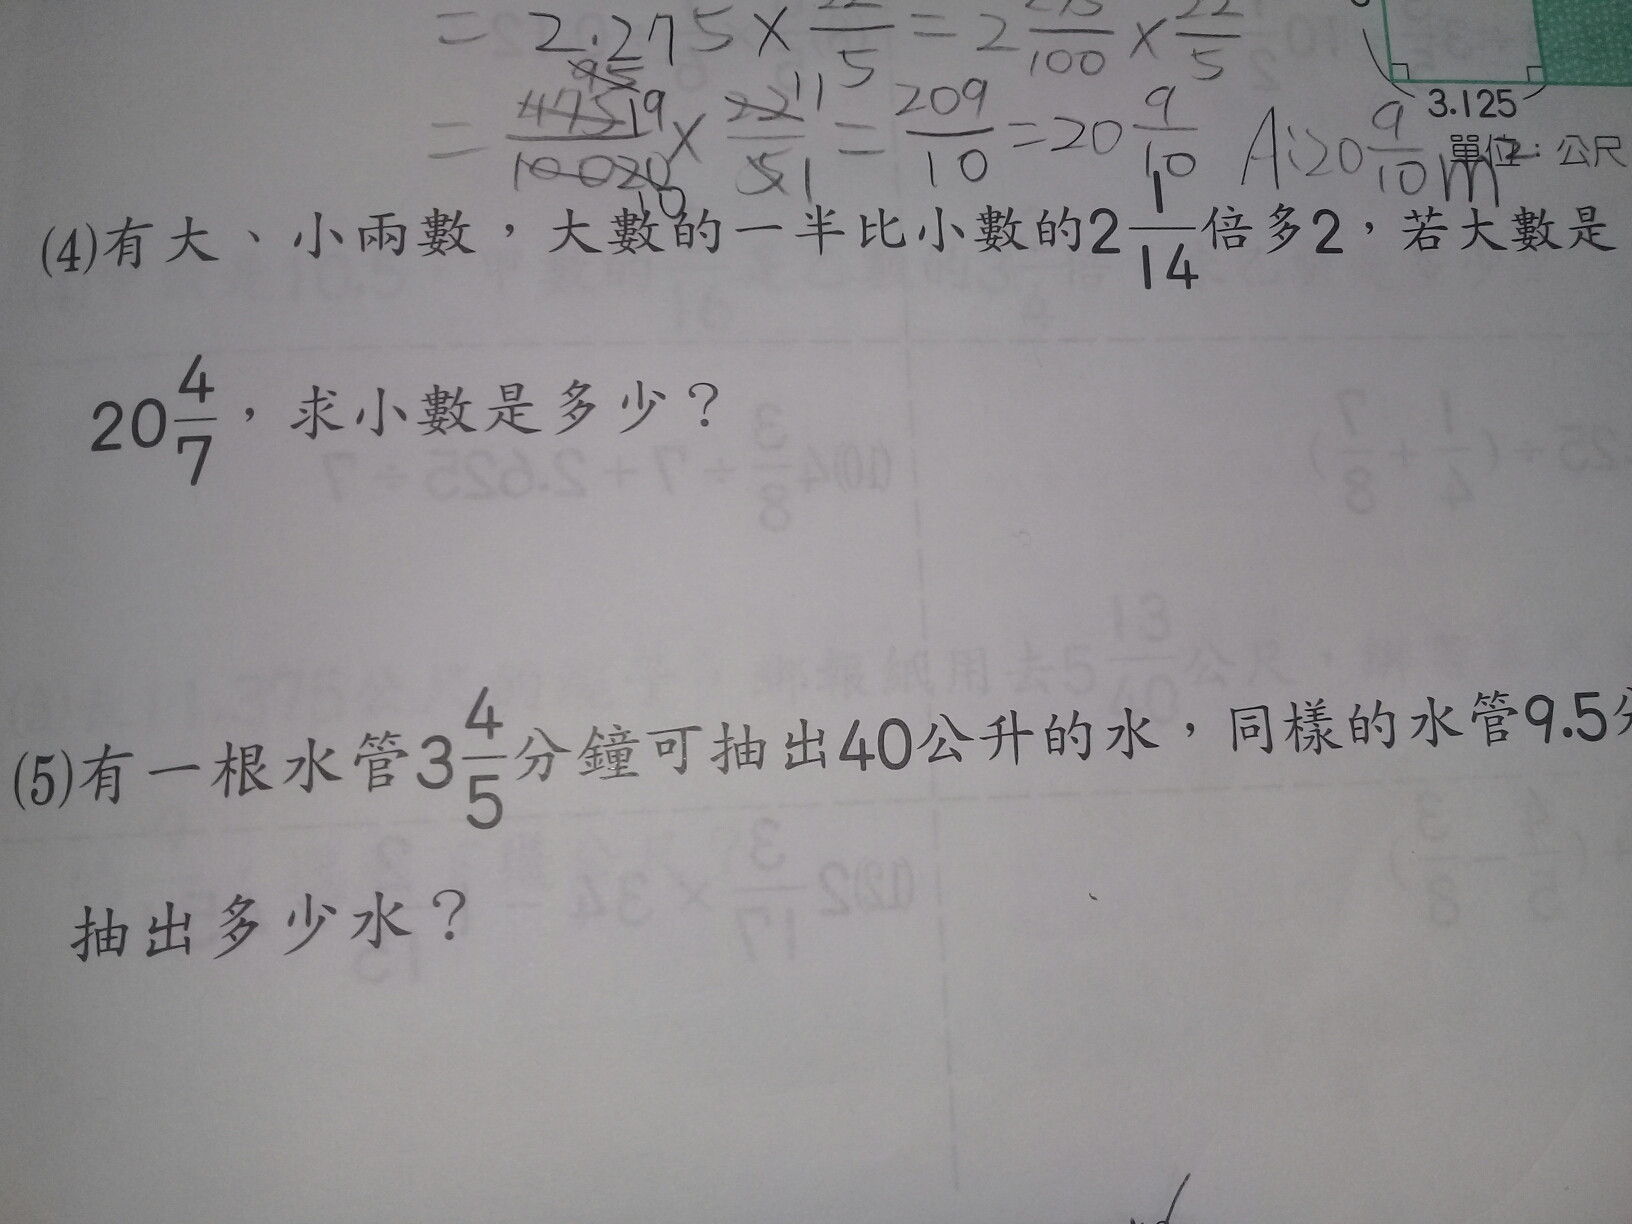 = 2.275 × 22/5 = 2 275/100 × 22/5
3.125
= 475/1000 × 22/5 = 209/10 = 20 9/10 A:20 9/10 m²
單位：公尺
(4)有大、小兩數，大數的一半比小數的2 1/14倍多2，若大數是
20 4/7，求小數是多少？
(5)有一根水管3 4/5分鐘可抽出40公升的水，同樣的水管9.5分
抽出多少水？